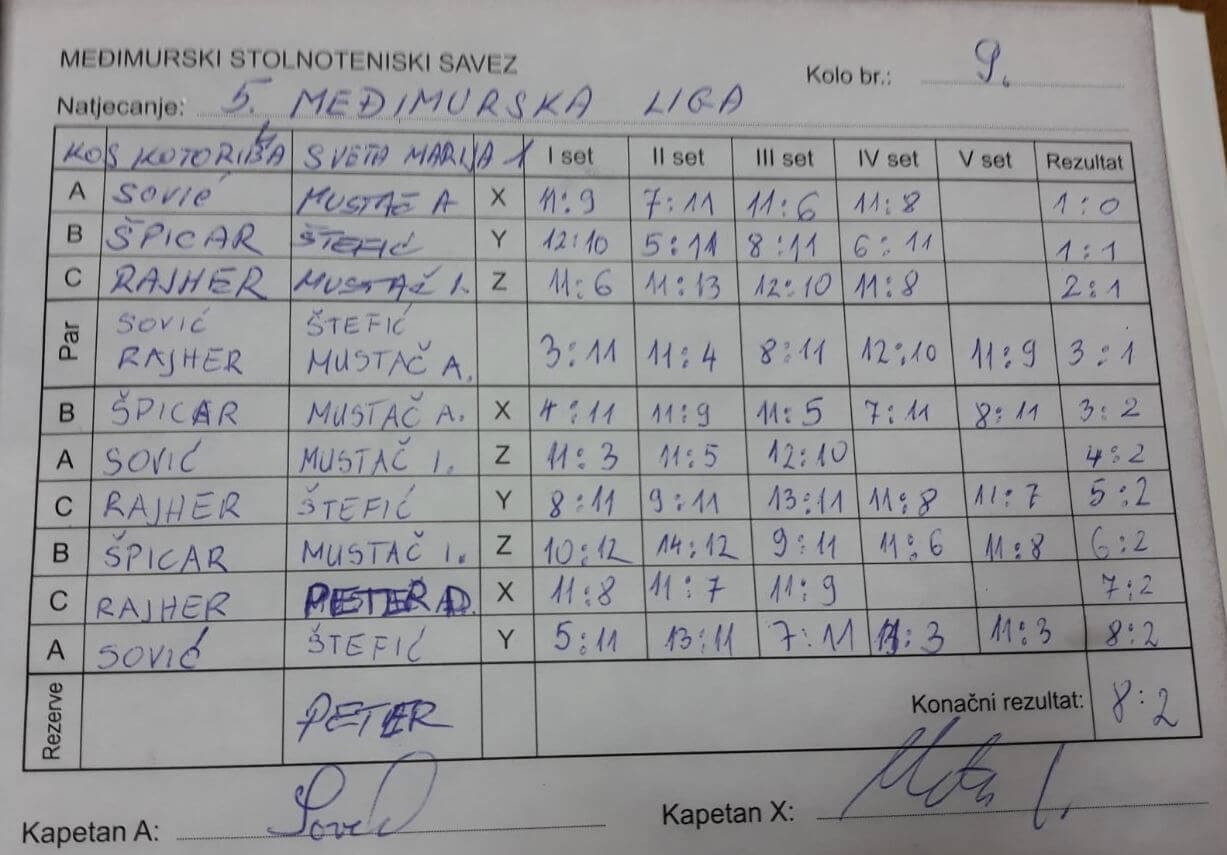 MEĐIMURSKI STOLNOTENISKI SAVEZ
Kolo br.: 9.
Natjecanje: 5. MEĐIMURSKA LIGA
KOŠ KOTORIBA SVETA MARIJA 1 I set II set III set IV set V set Rezultat
A SOVIĆ MUSTAČ A X 11:9 7:11 11:6 11:8 1:0
B ŠPICAR ŠTEFIĆ Y 12:10 5:11 8:11 6:11 1:1
C RAJHER MUSTAČ I. Z 11:6 11:13 12:10 11:8 2:1
Par SOVIĆ ŠTEFIĆ
RAJHER MUSTAČ A. 3:11 11:4 8:11 12:10 11:9 3:1
B ŠPICAR MUSTAČ A. X 4:11 11:9 11:5 7:11 8:11 3:2
A SOVIĆ MUSTAČ I. Z 11:3 11:5 12:10 4:2
C RAJHER ŠTEFIĆ Y 8:11 9:11 13:11 11:8 11:7 5:2
B ŠPICAR MUSTAČ I. Z 10:12 14:12 9:11 11:6 11:8 6:2
C RAJHER PETER D. X 11:8 11:7 11:9 7:2
A SOVIĆ ŠTEFIĆ Y 5:11 13:11 7:11 11:3 11:3 8:2
Rezerve PETER Konačni rezultat: 8:2
Kapetan A: Kapetan X: